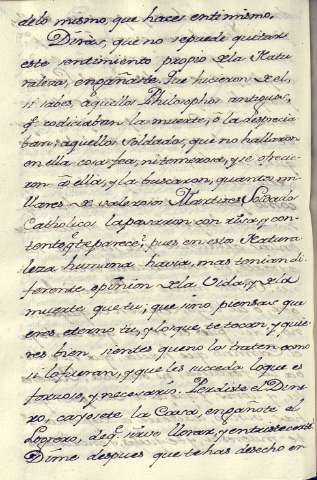 delo mismo, que haces entimismo.
Dirás, que no sepuede quitar
este sentimiento propio dela Natu
raleza, engañaste. Que hicieron del,
si sabes aquellos Philosophos antiguos,
q.e codiciaban la muerte, ô la desprecia
ban; aquellos Soldados, que no hallaron
en ella cosa fea, nitemerosa, y se ofrecie
ron â ella, y la buscaron, quantos mi
llares de valerosos Martires Soldados
Catholicos la pasaron con risa, y con
tento; q.e te parece? pues en estos Natura
leza humana havia, mas tenian di
ferente opinion dela Vida, y dela
muerte que tu; que sino piensas que
eres eterno tu, y los que te tocan, y quie
res bien, sientes que no la traten como
si lo fueran, y que les suceda loque es
forzoso, y necesario. Perdiste el Dine
ro, cayosete la Casa, engañote el
Logrero, de q.e sirve llorar, y entristecerte?
Dime despues que te has desecho en